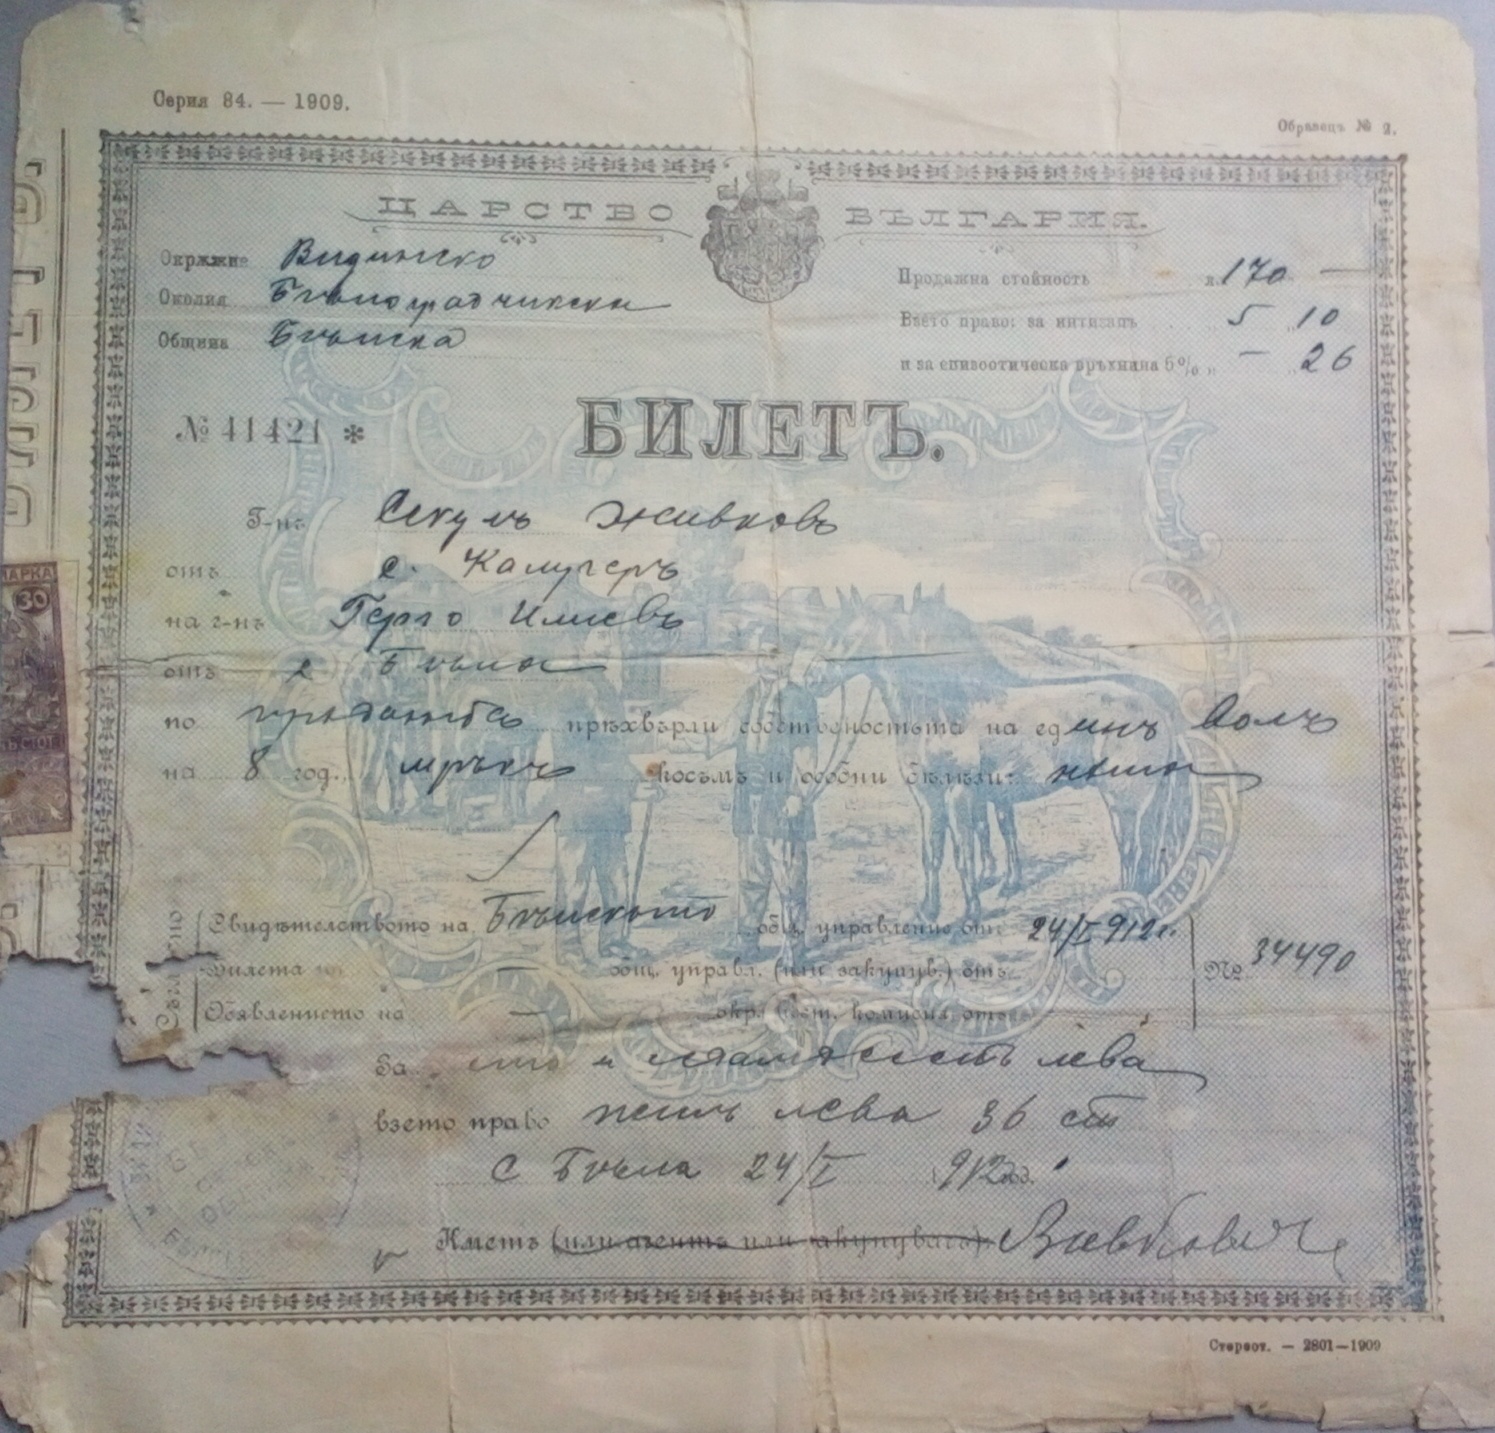 Серия 84. — 1909.
Образецъ № 2.
ЦАРСТВО БЪЛГАРИЯ.
Окръжие Видинско
Околия Бѣлоградчикска
Община Бѣлска
Продажна стойность л. 170 —
Взето право: за интизапъ 5 10
и за епизоотическа връхнина 5% — 26
№ 41421 *
БИЛЕТЪ.
Г-нъ Секулъ Живковъ
отъ с. Калугеръ
на г-нъ Герго Илиевъ
отъ с Бѣла
по продажба прѣхвърли собственостьта на единъ волъ
на 8 год. мръкъ косъмъ и особни бѣлѣзи: нѣма
Свидѣтелството на Бѣлското общ. управление отъ 24/I 912 г.
Билета общ. управл. (или закупув.) отъ
№ 34490
Обявлението на — окр. пост. комисия отъ
За сто и седамдесетъ лева
взето право петь лева 36 ст
с Бѣла 24/I 912 год.
Кметъ (или агентъ или закупувачъ)
Стереот. — 2801—1909
МАРКА
30